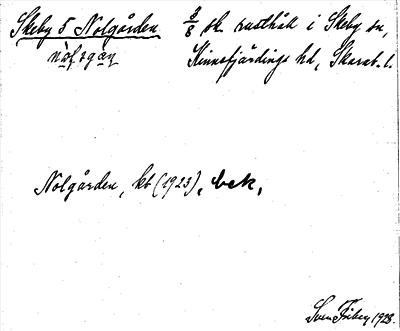 Skeby 5 Nolgården 3/8 sk. rusthåll i Skeby sn,
Kinnefjärdings hd, Skarab. l.
Nolgården, kb (1923), bek,
Sven Fiberg 1928.